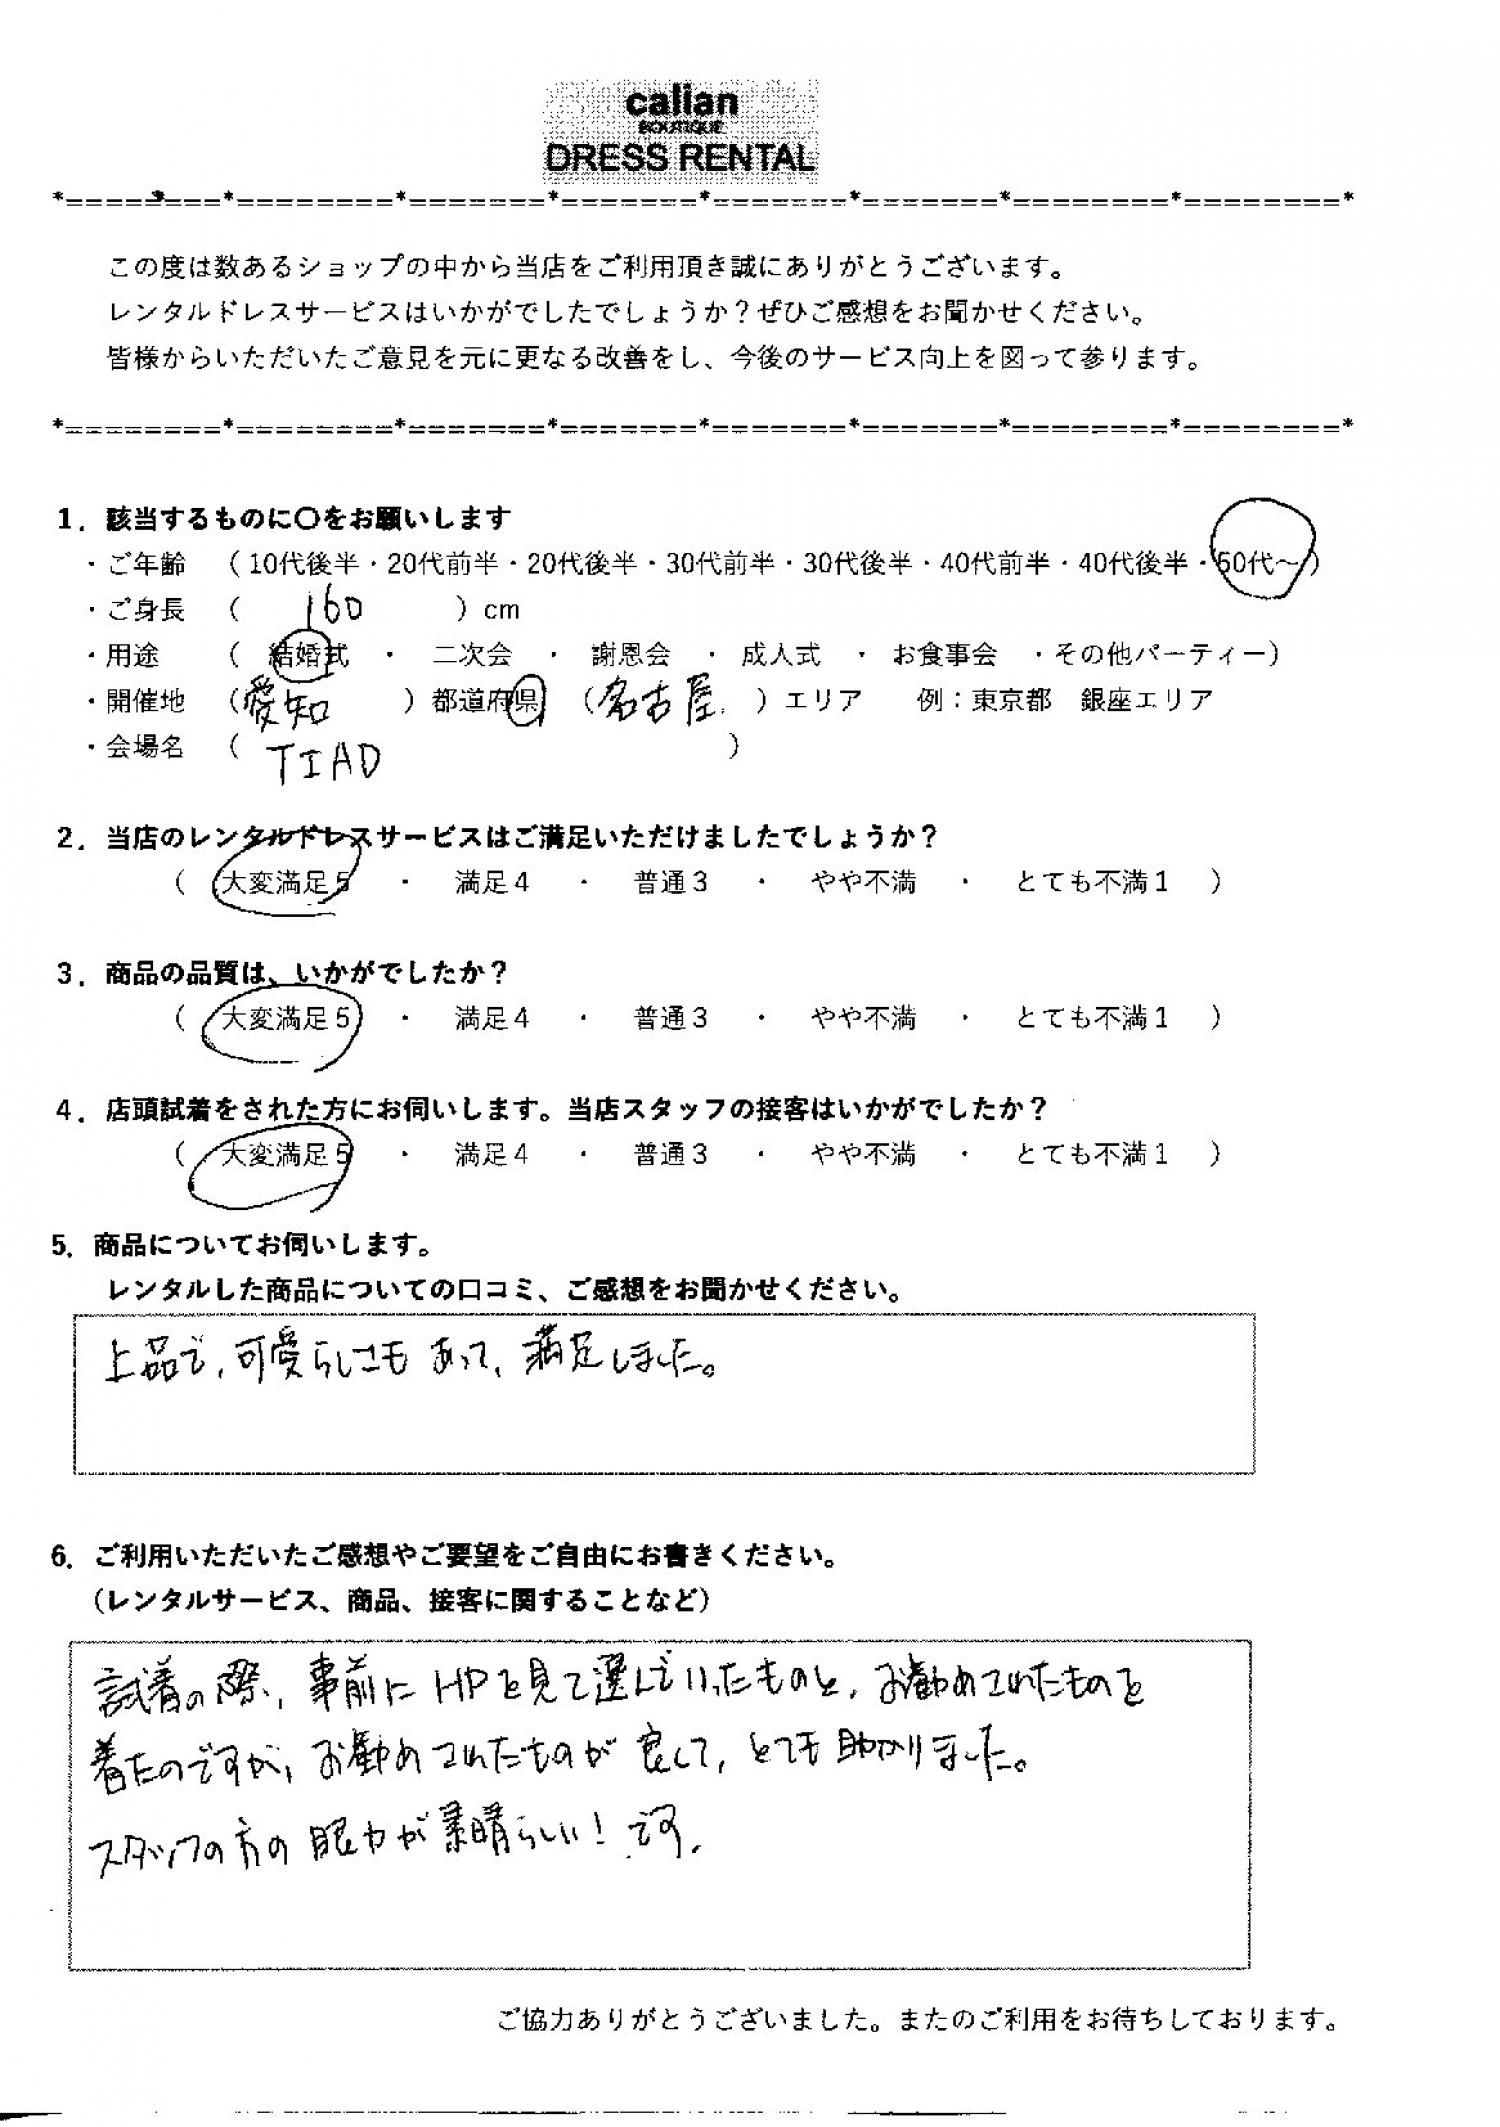 calian
BOUTIQUE
DRESS RENTAL
*========*========*=======*=======*=======*=======*========*========*
この度は数あるショップの中から当店をご利用頂き誠にありがとうございます。
レンタルドレスサービスはいかがでしたでしょうか？ぜひご感想をお聞かせください。
皆様からいただいたご意見を元に更なる改善をし、今後のサービス向上を図って参ります。
*========*========*=======*=======*=======*=======*========*========*
1．該当するものに〇をお願いします
・ご年齢 （10代後半・20代前半・20代後半・30代前半・30代後半・40代前半・40代後半・50代～）
・ご身長 （ 160 ）cm
・用途 （ 結婚式 ・ 二次会 ・ 謝恩会 ・ 成人式 ・ お食事会 ・その他パーティー）
・開催地 （愛知 ）都道府県 （名古屋 ）エリア 例：東京都 銀座エリア
・会場名 （ TIAD ）
2．当店のレンタルドレスサービスはご満足いただけましたでしょうか？
（ 大変満足5 ・ 満足4 ・ 普通3 ・ やや不満 ・ とても不満1 ）
3．商品の品質は、いかがでしたか？
（ 大変満足5 ・ 満足4 ・ 普通3 ・ やや不満 ・ とても不満1 ）
4．店頭試着をされた方にお伺いします。当店スタッフの接客はいかがでしたか？
（ 大変満足5 ・ 満足4 ・ 普通3 ・ やや不満 ・ とても不満1 ）
5．商品についてお伺いします。
レンタルした商品についての口コミ、ご感想をお聞かせください。
上品で、可愛らしさもあって、満足しました。
6．ご利用いただいたご感想やご要望をご自由にお書きください。
（レンタルサービス、商品、接客に関することなど）
試着の際、事前にHPを見て選んでいったものと、お勧めされたものを
着たのですが、お勧めされたものが良くて、とても助かりました。
スタッフの方の眼力が素晴らしい！です。
ご協力ありがとうございました。またのご利用をお待ちしております。